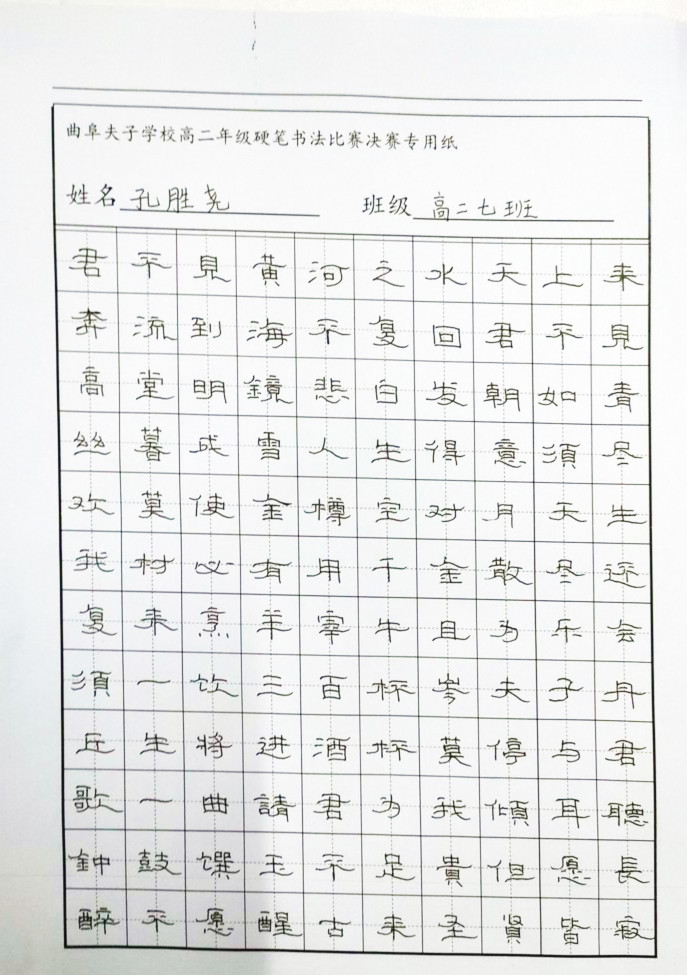 曲阜夫子学校高二年级硬笔书法比赛决赛专用纸
姓名 孔胜尧 班级 高二七班
君不見黃河之水天上来
奔流到海不复回君不見
高堂明鏡悲白发朝如青
丝暮成雪人生得意須尽
欢莫使金樽空对月天生
我材必有用千金散尽还
复来烹羊宰牛且为乐会
須一饮三百杯岑夫子丹
丘生將进酒杯莫停与君
歌一曲請君为我傾耳聽
鈡鼓馔玉不足貴但愿長
醉不愿醒古来圣賢皆寂